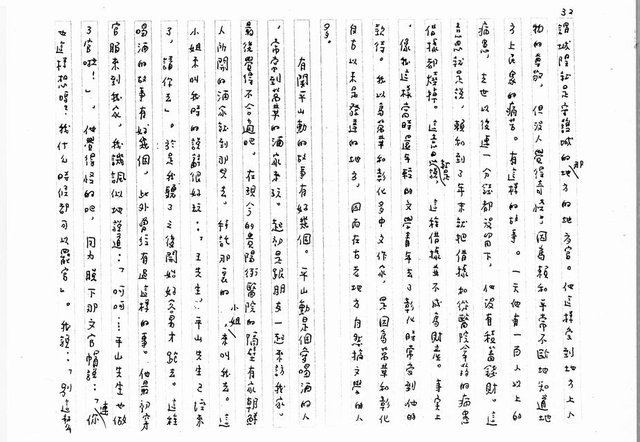 32
謂城隍就是守護城的那地方的地方官。他這樣受到地方上人
物的尊敬,但沒人覺得奇怪。因為賴和平常不斷地知道地
方上民眾的病苦。有這樣的故事。一天他看一百人以上的
病患,去世以後連一分錢都沒留下,他沒有積蓄錢財。這
意思就是說,賴和到了年末就把借據和從醫院拿藥的病患
借據都燒掉。這意思就是說,這種借據並不成為財產。事實上
像我這樣當時還年輕的文學青年去了彰化時常受到他的
款待。我以為萬華和彰化多中文作家,是因為萬華和彰化
自古以來是發達的地方,因而在古老地方自然搞文學的人
多。
有關平山勳的故事有好幾個。平山勳是個會喝酒的人
常常到萬華的酒家來玩。起初是跟朋友一起來訪我家。
最後覺得不合適吧,在現今的貴陽街醫院的隔壁有家朝鮮
人所開的酒家就到那兒去。特託那裏的小姐來叫我去。這
小姐來叫我時的說辭很好玩:「王先生,平山先生已經來
了,請你去」。於是我聽了之後開始好容易才跑去。這樣
喝酒的故事有好幾個,此外曾經有過這樣的事。他最初穿
官服來到我家,我諷刺似地說道:「呵呵…平山先生也做
了官啦!」,他覺得怪的吧,因為脫下那文官帽說:「你連
也這樣想嗎?我什么時候都可以罷官」。我說:「別這麼